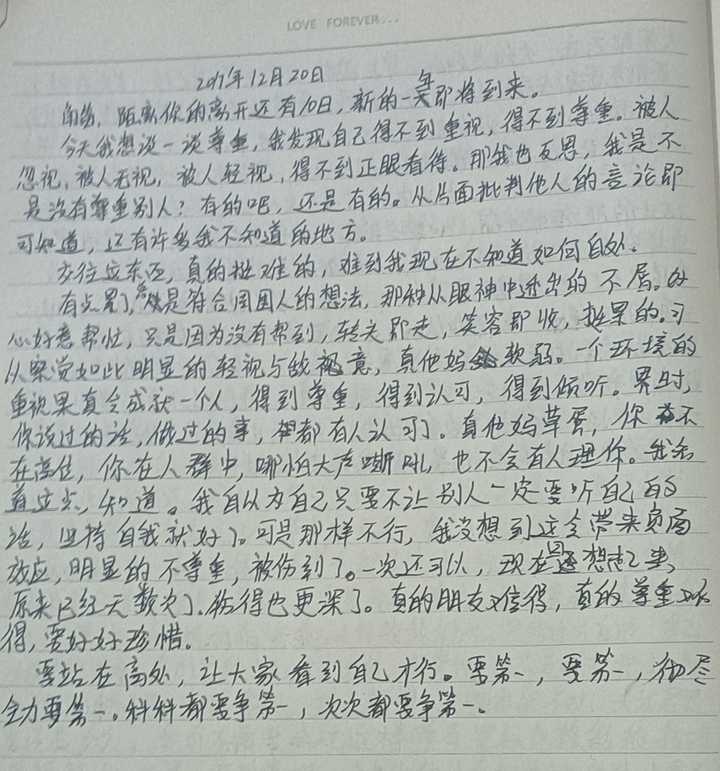 LOVE FOREVER...
2017年12月20日
距离你的离开还有10日，新的一年即将到来。
今天我想谈一谈尊重，我发现自己得不到重视，得不到尊重。被人
忽视，被人无视，被人轻视，得不到正眼看待。那我也反思，我是不
是没有尊重别人？有的吧，还是有的。从片面批判他人的言论即
可知道，还有许多我不知道的地方。
交往这东西，真的挺难的，难到我现在不知道如何自处。
有点累了，是符合周围人的想法，那种从眼神中透出的不屑。好
心好意帮忙，只是因为没有帮到，转头即走，笑容即收，挺累的。可
从察觉如此明显的轻视与敌意，真他妈软弱。一个环境的
重视果真会成就一个人，得到尊重，得到认可，得到倾听。累时，
你说过的话，做过的事，都有人认可。真他妈草蛋，你不
在高位，你在人群中，哪怕大声嘶吼，也不会有人理你。我知
道这点，知道。我自以为自己只要不让别人一定要听自己的
话，坚持自我就好了。可是那样不行，我没想到这会带来负面
效应，明显的不尊重，被伤到了。一次还可以，现在想起来，
原来已经无数次了，伤得也更深了。真的朋友难得，真的尊重难
得，要好好珍惜。
要站在高处，让大家看到自己才行。要第一，要第一，尽
全力要第一。科科都要争第一，次次都要争第一。